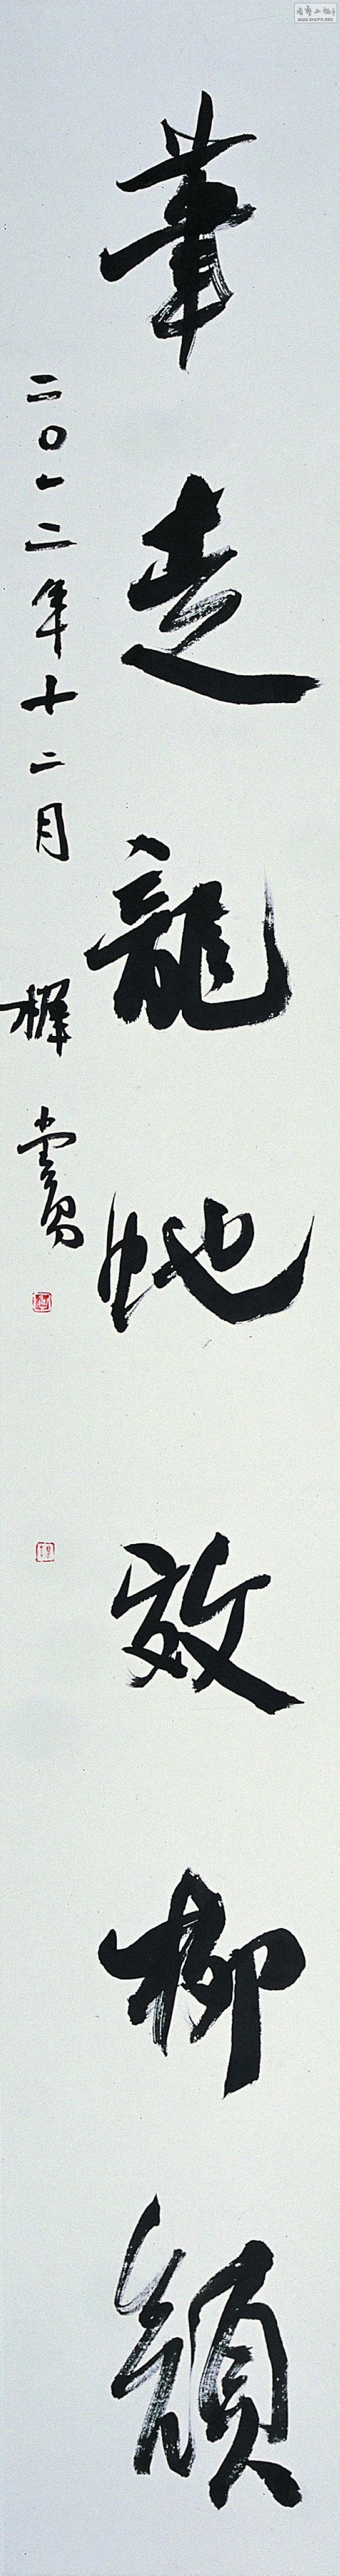 筆走龍蛇效柳顏
二〇一二年十二月
WWW.SHUFR.ORG